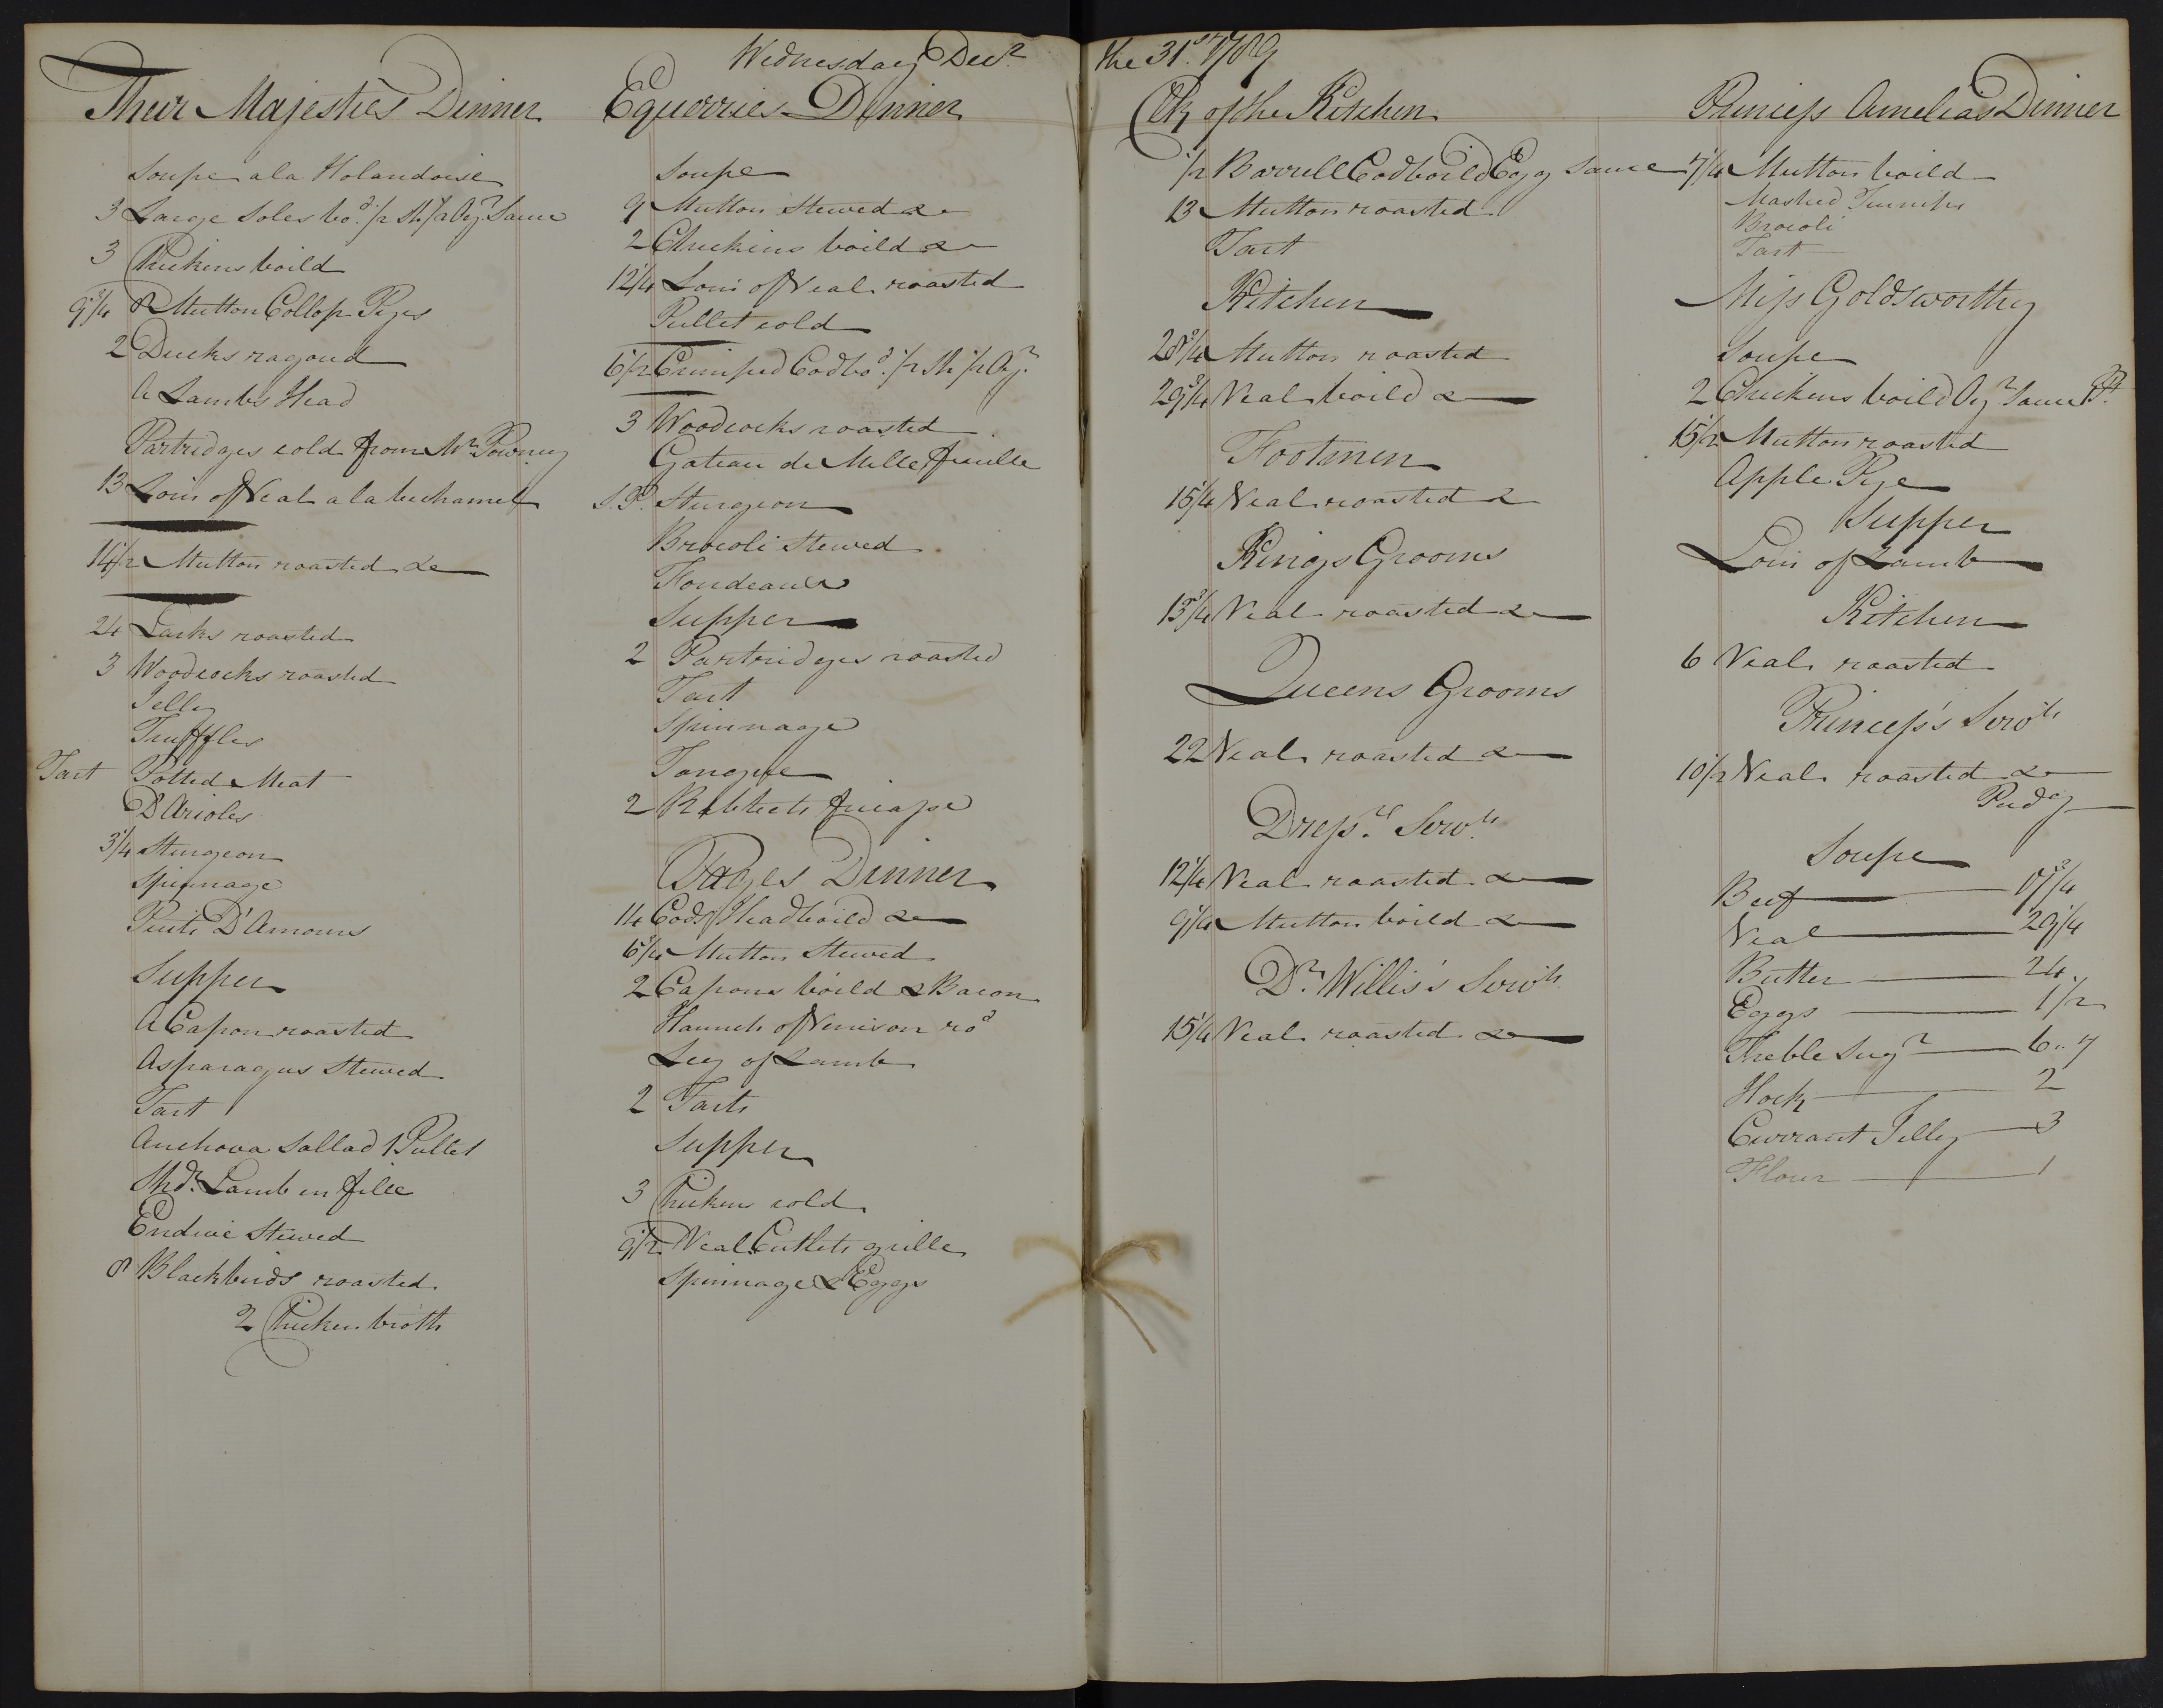 Wednesday Decr the 31st 1789
Their Majesties Dinner
Soupe a la Holandoise
3 Large Soles bod 1/2 Sh 1/2 Ayr Sauce
3 Chickens boild
9 3/4 8 Mutton Collop Pyes
2 Ducks ragoud
A Lambs Head
Partridges cold from Mr Powney
13 Loin of Veal a la bechamel
14 1/2 Mutton roasted &c
24 Larks roasted
3 Woodcocks roasted
Jelly
Truffles
Tart Potted Meat
D'Arioles
3 1/4 Sturgeon
Spinnage
Puits D'Amours
Supper
A Capon roasted
Asparagus Stewed
Tart
Anchova Sallad 1 Pullet
Shdr Lamb en filee
Endive Stewed
8 Blackbirds roasted
2 Chicken broth
Equerries Dinner
Soupe
9 Mutton Stewed &c
2 Chickens boild &c
12 1/4 Loin of Veal roasted
Pullet cold
6 1/2 Crimped Cod bod 1/2 Sh 1/2 Ayr
3 Woodcocks roasted
Gateau de Mille fuille
S.P. Sturgeon
Brocoli Stewed
Fondeaux
Supper
2 Partridges roasted
Tart
Spinnage
Tongue
2 Rabbects fricasse
Pages Dinner
14 Cods Head boild &c
6 3/4 Mutton Stewed
2 Capons boild & Bacon
Haunch of Venison rod
Leg of Lamb
2 Tarts
Supper
3 Chickens cold
9 1/2 Veal Cutlets grille
Spinnage & Eggs
Clk of the Kitchen
1/2 Barrell Cod boild Egg Sauce
13 Mutton roasted
Tart
Kitchen
28 3/4 Mutton roasted
29 3/4 Veal boild &
Footmen
15 1/4 Veal roasted &
Kings Grooms
13 3/4 Veal roasted &c
Queens Grooms
22 Veal roasted &
Dressrs Servts
12 1/4 Veal roasted &
9 1/4 Mutton boild &
Dr Willis's Servts
15 1/4 Veal roasted &
Princess Amelias Dinner
7 1/4 Mutton boild
Mashed Turnips
Brocoli
Tart
Miss Goldsworthy
Soupe
2 Chickens boild Ayr Sauce Pt
15 1/2 Mutton roasted
Apple Pye
Supper
Loin of Lamb
Kitchen
6 Veal roasted
Princess's Servts
10 1/2 Veal roasted &
Pudg
Soupe
Beef 17 3/4
Veal 29 1/4
Butter 24
Eggs 1/2
Threble Sugr 6 " 7
Hock 2
Currant Jelly 3
Flour 1